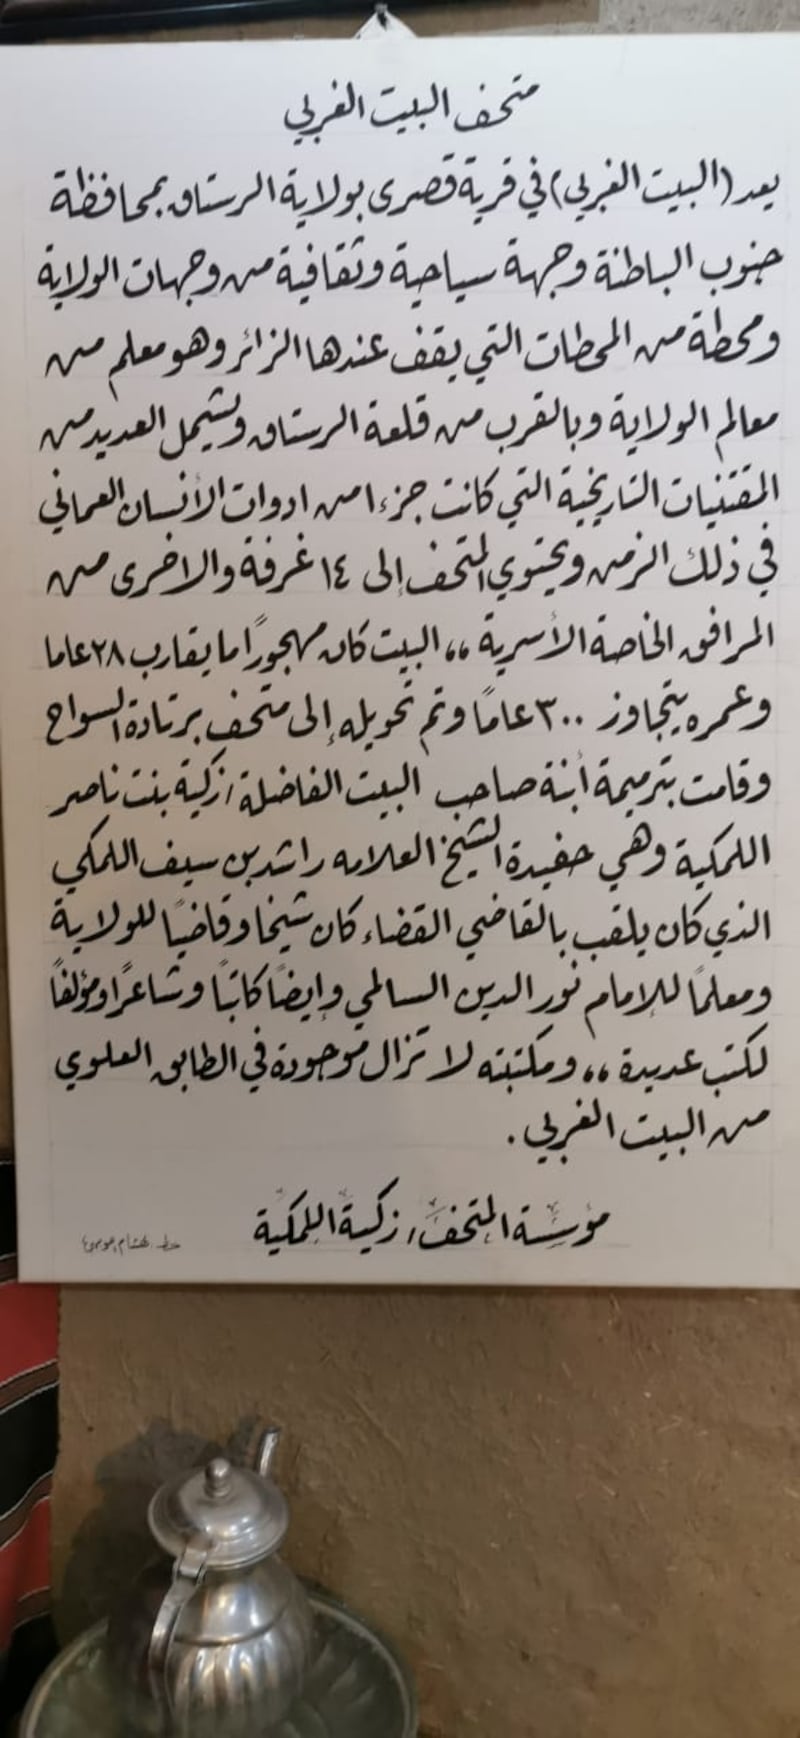 متحف البيت الغربي
يعد (البيت الغربي) في قرية قصرى بولاية الرستاق بمحافظة
جنوب الباطنة وجهة سياحية وثقافية من وجهات الولاية
ومحطة من المحطات التي يقف عندها الزائر وهو معلم من
معالم الولاية وبالقرب من قلعة الرستاق ويشمل العديد من
المقتنيات التاريخية التي كانت جزءا من ادوات الأنسان العماني
في ذلك الزمن ويحتوي المتحف إلى ١٤ غرفة والاخرى من
المرافق الخاصة الأسرية ،، البيت كان مهجورًا ما يقارب ٢٨ عاما
وعمره يتجاوز ٣٠٠ عامًا وتم تحويله إلى متحف يرتادة السواح
وقامت بترميمة أبنة صاحب البيت الفاضلة / زكية بنت ناصر
اللمكية وهي حفيدة الشيخ العلامه راشد بن سيف اللمكي
الذي كان يلقب بالقاضي القضاء كان شيخا وقاضيًا للولاية
ومعلمًا للإمام نور الدين السالمي وإيضًا كاتبًا وشاعرًا ومؤلفًا
لكتب عديدة ،، ومكتبته لا تزال موجودة في الطابق العلوي
من البيت الغربي .
مؤسسة المتحف / زكية اللمكية